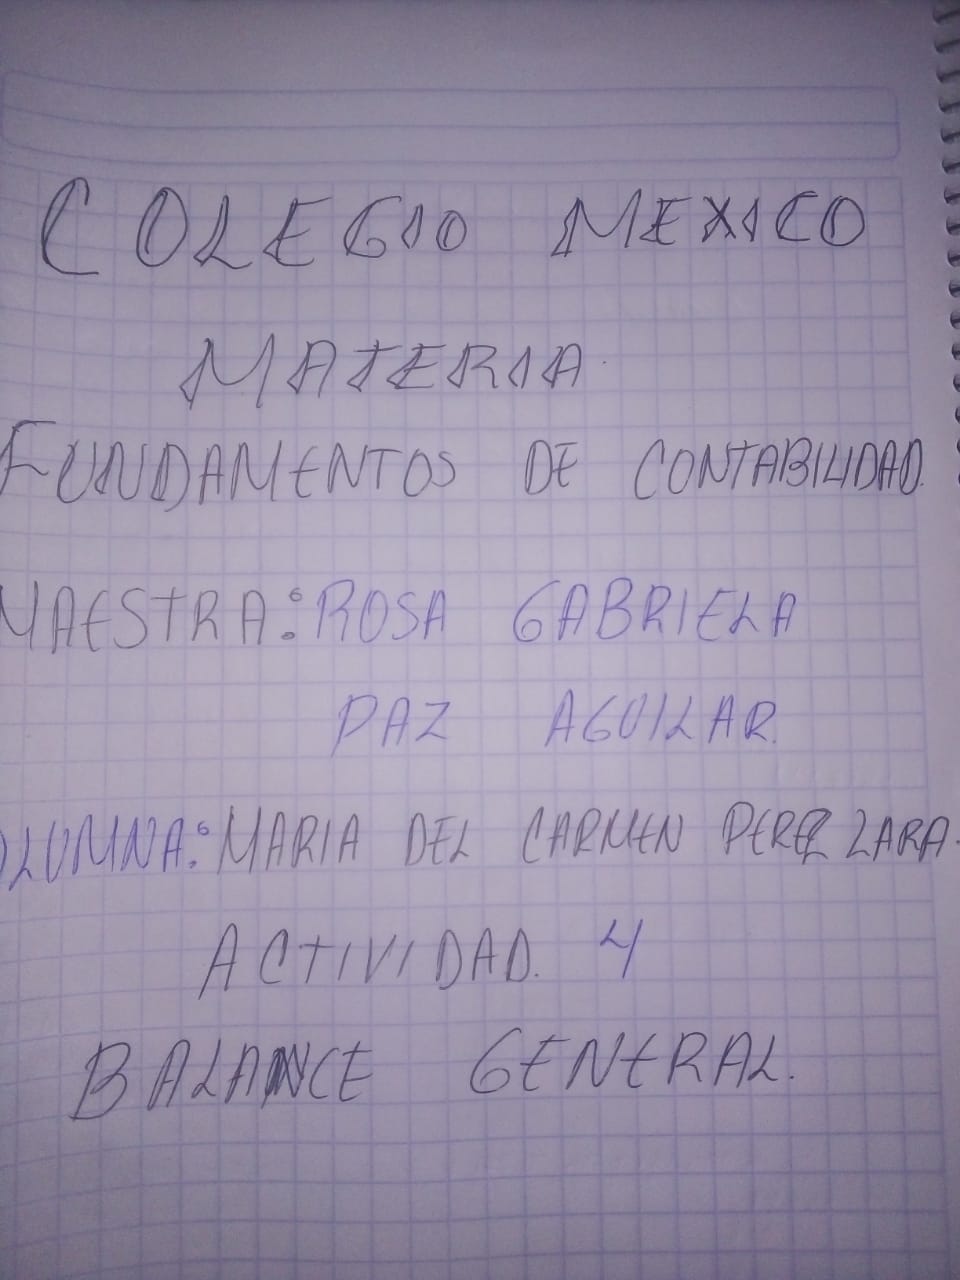 COLEGIO MEXICO
MATERIA.
FUNDAMENTOS DE CONTABILIDAD.
MAESTRA: ROSA GABRIELA
PAZ AGUILAR.
ALUMNA: MARIA DEL CARMEN PEREZ LARA.
ACTIVIDAD. 4
BALANCE GENERAL.